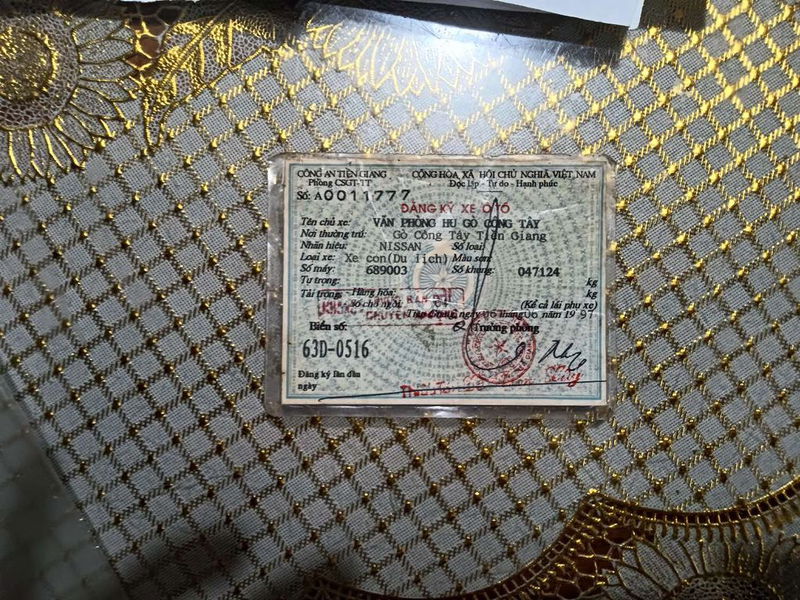 CÔNG AN TIỀN GIANG CỘNG HÒA XÃ HỘI CHỦ NGHĨA VIỆT NAM
Phòng CSGT-TT Độc lập - Tự do - Hạnh phúc
Số: A0011777
ĐĂNG KÝ XE Ô TÔ
Tên chủ xe: VĂN PHÒNG HU GÒ CÔNG TÂY
Nơi thường trú: Gò Công Tây Tiền Giang
Nhãn hiệu: NISSAN Số loại
Loại xe: Xe con(Du lịch) Màu sơn:
Số máy: 689003 Số khung: 047124
Tự trọng: kg
Tải trọng: Hàng hóa: kg
Số chỗ ngồi: 04 (Kể cả lái phụ xe)
ngày 06 tháng 06 năm 1997
Biển số: Trưởng phòng
63D-0516
Đăng ký lần đầu
ngày